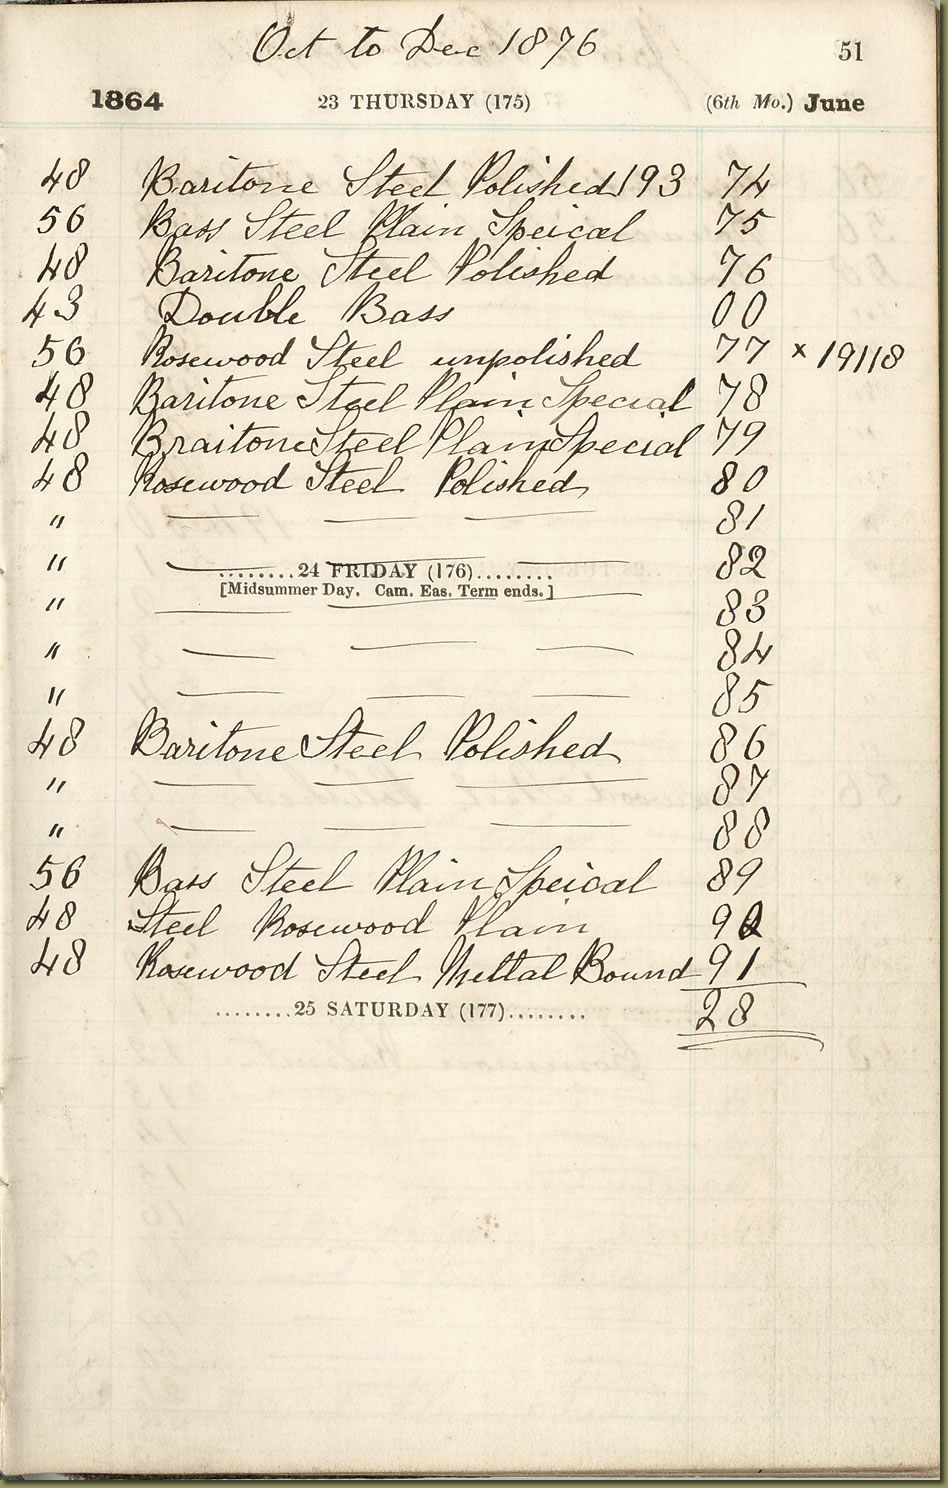 Oct to Dec 1876
51
1864 23 THURSDAY (175) (6th Mo.) June
48 Baritone Steel Polished 193 74
56 Bass Steel Plain Speical 75
48 Baritone Steel Polished 76
43 Double Bass 00
56 Rosewood Steel unpolished 77 x 19118
48 Baritone Steel Plain Special 78
48 Braitone Steel Plain Special 79
48 Rosewood Steel Polished 80
" — — — 81
" — — — 82
........24 FRIDAY (176)........
[Midsummer Day. Cam. Eas. Term ends.]
" — — — 83
" — — — 84
" — — — 85
48 Baritone Steel Polished 86
" — — — 87
" — — — 88
56 Bass Steel Plain Speical 89
48 Steel Rosewood Plain 90
48 Rosewood Steel Mettal Bound 91
28
........25 SATURDAY (177)........